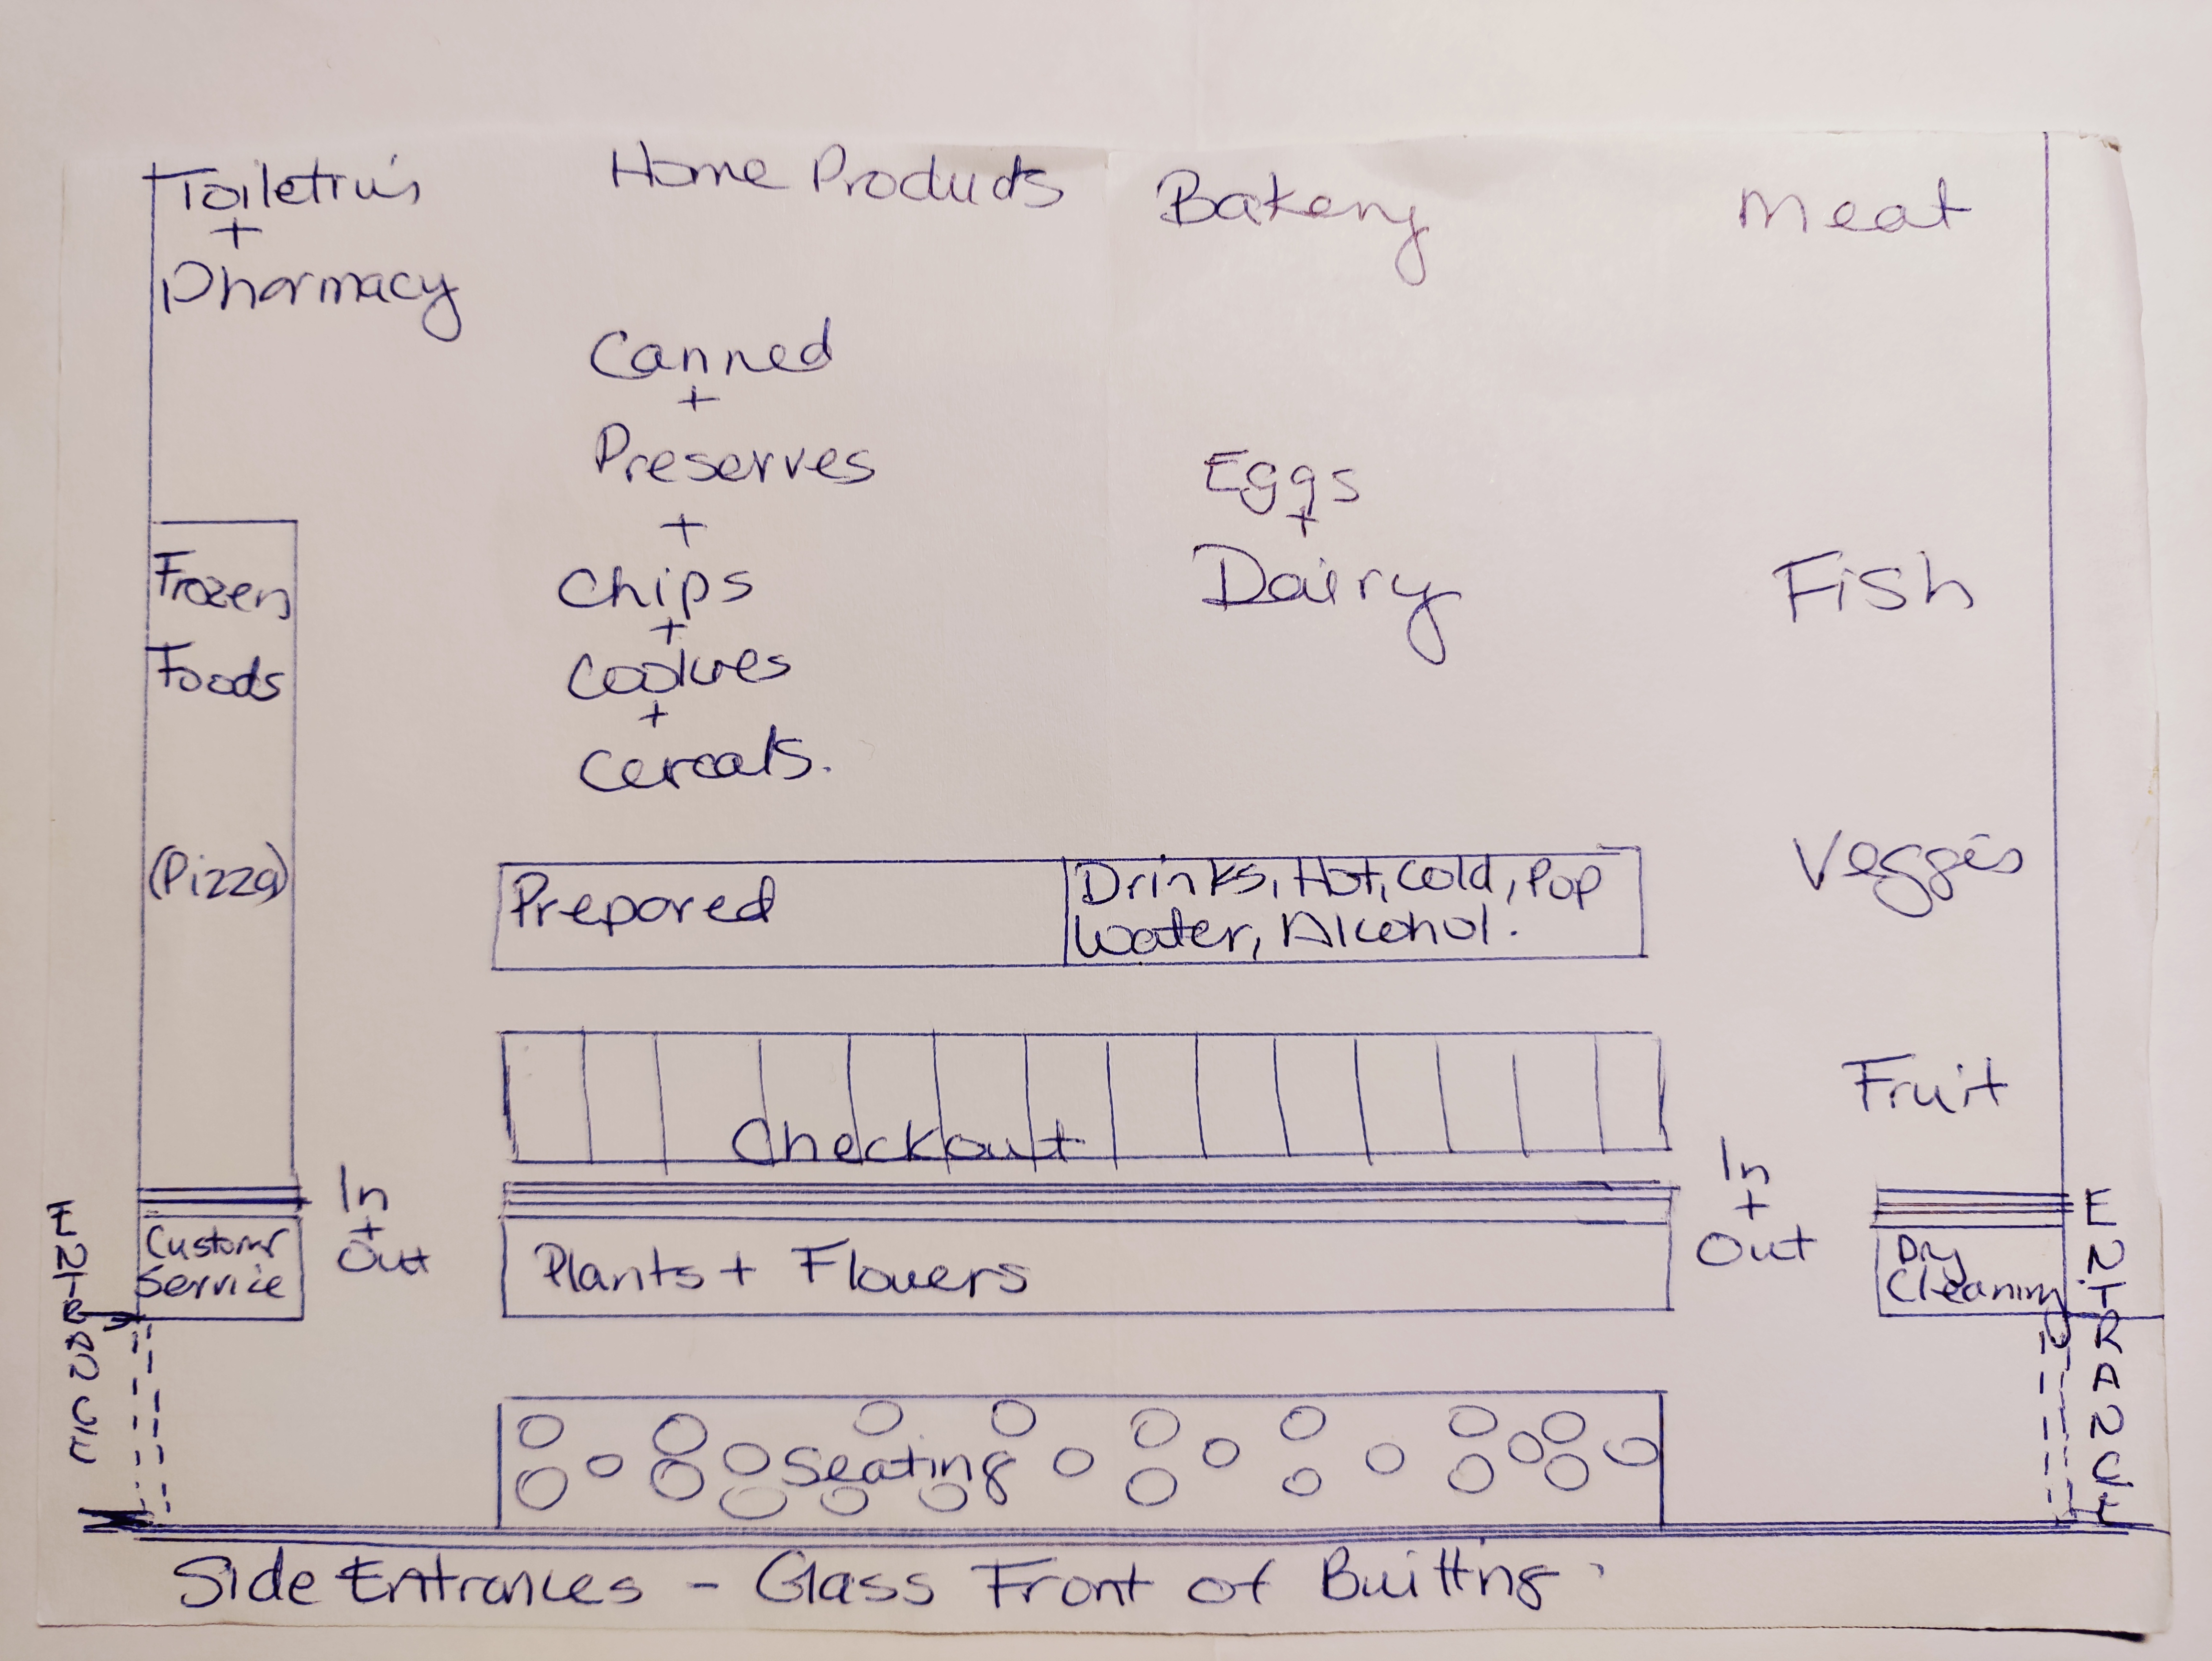 Toiletries
+
Pharmacy
Home Products
Bakery
Meat
Canned
+
Preserves
+
Chips
+
Cookies
+
Cereals.
Eggs
+
Dairy
Fish
Frozen
Foods
(Pizza)
Prepared
Drinks, Hot, Cold, Pop
Water, Alcohol.
Veggies
Fruit
Checkout
In
+
Out
In
+
Out
Customer
Service
Plants + Flowers
Dry
Cleaning
ENTRANCE
ENTRANCE
Seating
Side Entrances - Glass Front of